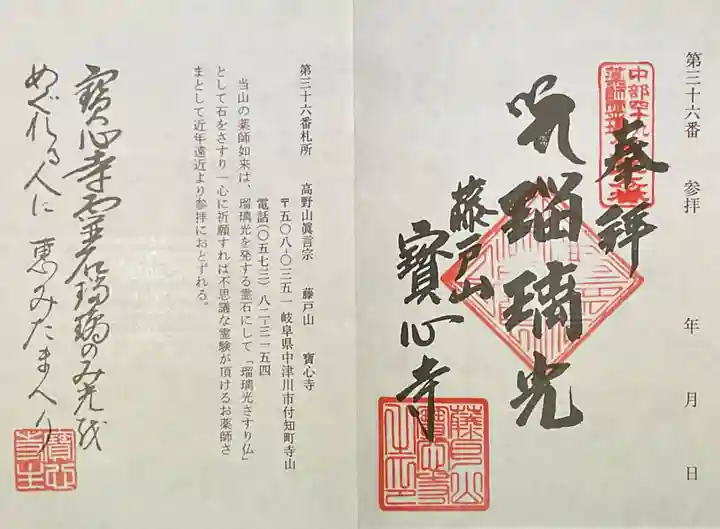 第三十六番 参拝 年 月 日
奉拝
瑠璃光
藤戸山
寳心寺
中部四十九
第三十六番札所 高野山眞言宗 藤戸山 寳心寺
〒五〇八-〇三五一 岐阜県中津川市付知町寺山
電話(〇五七三) 八二-三一五四
当山の薬師如来は、瑠璃光を発する霊石にして「瑠璃光さすり仏」
として石をさすり一心に祈願すれば不思議な霊験が頂けるお薬師さ
まとして近年遠近より参拝におとずれる。
寳心寺霊石瑠璃のみ光を
めぐれる人に 恵みたまへり